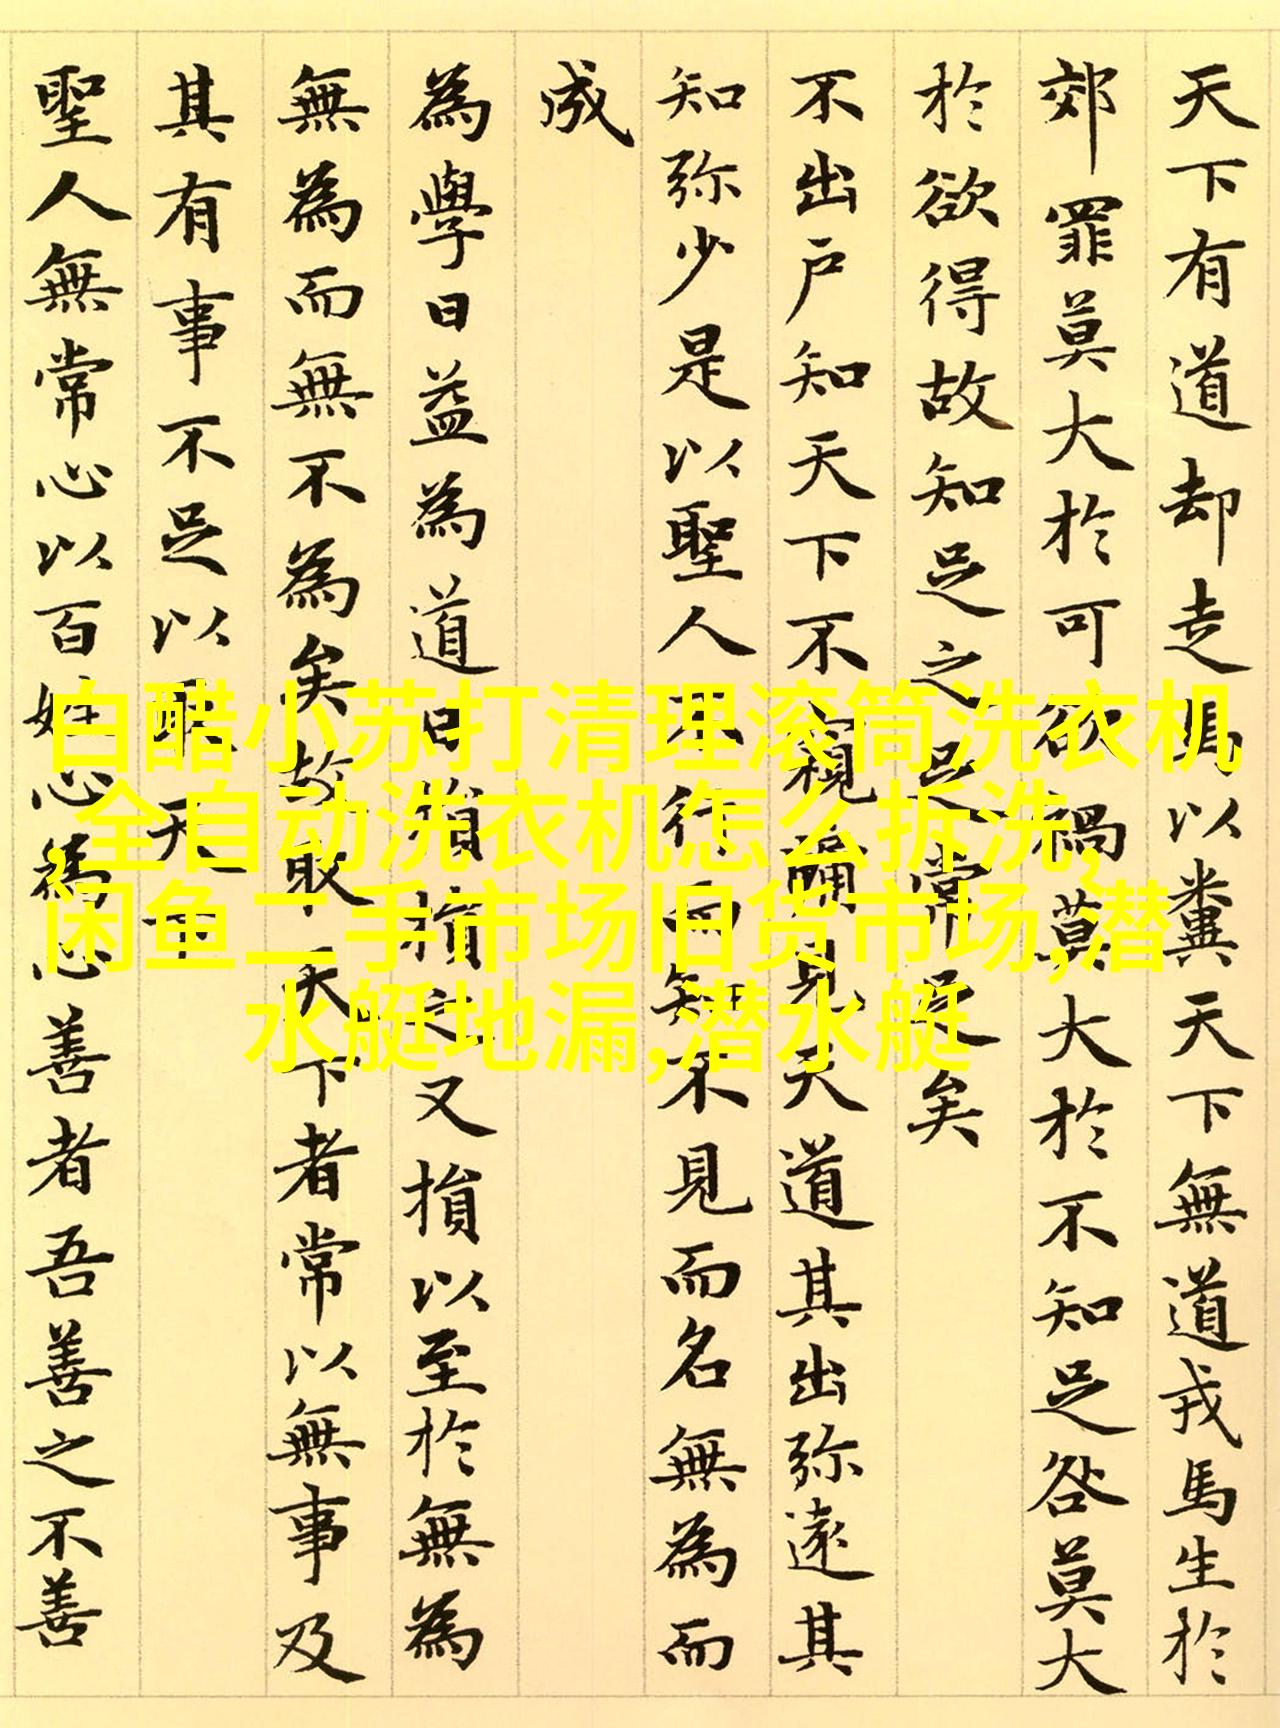 天下有道却走馬以糞天下無道戎馬生於
郊罪莫大於可欲禍莫大於不知足咎莫大
於欲得故知足之足常足矣
不出戶知天下不窺牖見天道其出弥遠其
知弥少是以聖人不行而知不見而名無為而
成
為學日益為道日損損之又損以至於無為
無為而無不為矣故取天下者常以無事及
其有事不足以取天下
聖人無常心以百姓心為心善者吾善之不善
白醋小苏打清理滚筒洗衣机
,全自动洗衣机怎么拆洗,
闲鱼二手市场旧货市场,潜
水艇地漏,潜水艇